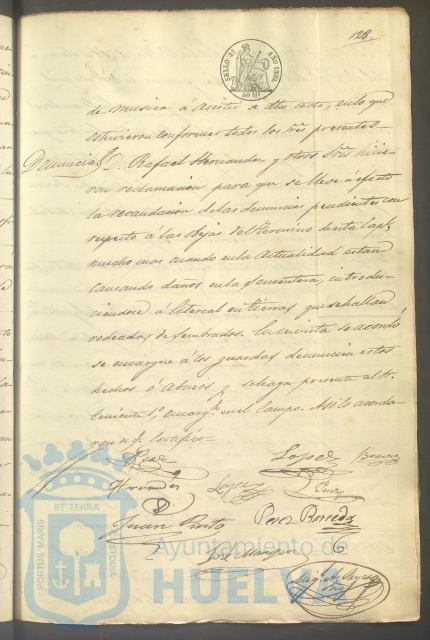 128.
SELLO 4º AÑO 1860.
40 Ms
de musica á asistir a dho acto, en lo que
estuvieron conformes todos los Sres presentes
Denuncias D. Rafael Hernandez y otros Sres hicie-
ron reclamacion para que se lleve á efecto
la recaudacion de las denuncias pendientes con
respecto á las Rejas del termino de esta Capl,
mucho mas cuando en la actualidad estan
causando daños en la sementera, introdu-
ciendose á en tierras que se hallan
rodeadas de sembrados. En su vista se acordó
se encargue á los guardas denuncien estos
hechos ó abusos y se haga presente al Sr.
teniente 1º encargº en el Campo. Asi lo acorda-
ron de q. certifico=
Lopez
Hernandez Lopez Perez
Juan Pinto Perez Barreda
José
PORTUS MARIS ET TERRAE CUSTODIA
Ayuntamiento de
HUELVA